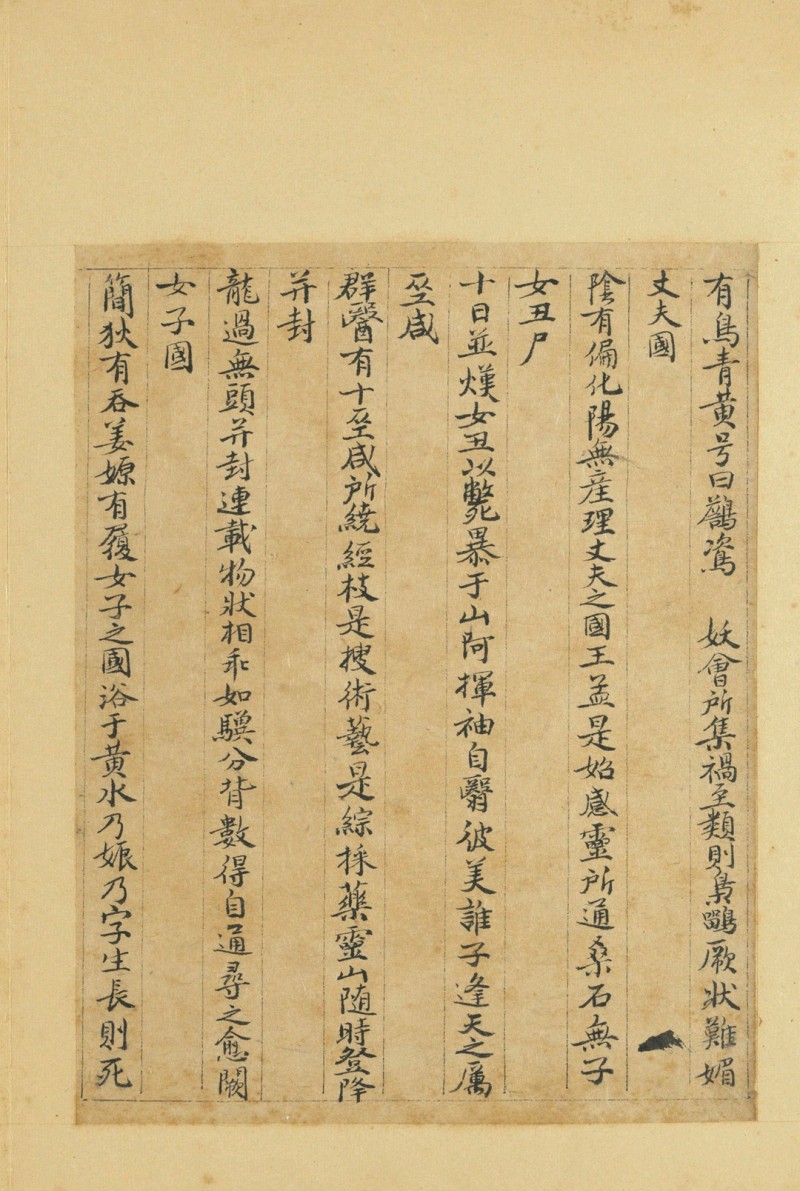 有鳥青黃号曰鷛鶿　妖會所集禍至類則梟鶹厥状難媚
丈夫國
陰有偏化陽無産理丈夫之國王孟是始感靈所通桑石無子
女丑尸
十日並熯女丑以斃暴于山阿揮袖自翳彼美誰子逢天之厲
巫咸
群醫有十巫咸所統經枝是搜術藝是綜採藥靈山随時登降
并封
龍過無頭并封連載物狀相乖如驥分背數得自通尋之愈閡
女子國
簡狄有吞姜嫄有履女子之國浴于黃水乃娠乃字生長則死